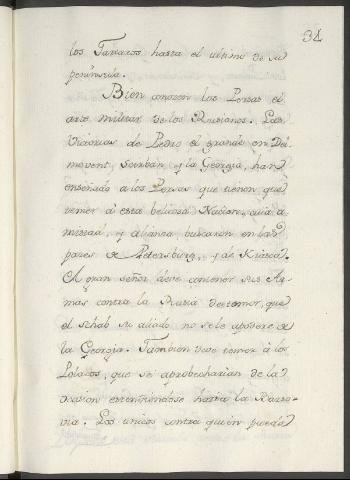 34
los Tartaros hasta el ultimo de su
peninsula.
Bien conocen los Persas el
arte militar de los Rusianos. Las
Victorias de Pedro el grande en
movent, y la Georgia, han
enseñado a los Persas que tienen que
temer à esta belicosa Nacion, cuia a
mistad, y alianza buscaron en las
pazes de Petersburg, y de Kiasca.
El gran señor deve contener sus Ar-
mas contra la Rusia de temor, que
el schab su aliado no se le apodere de
la Georgia. Tambien deve temer à los
Polacos, que se aprobecharian de la
ocasion estendiendose hasta la
via. Los unicos contra quien puede